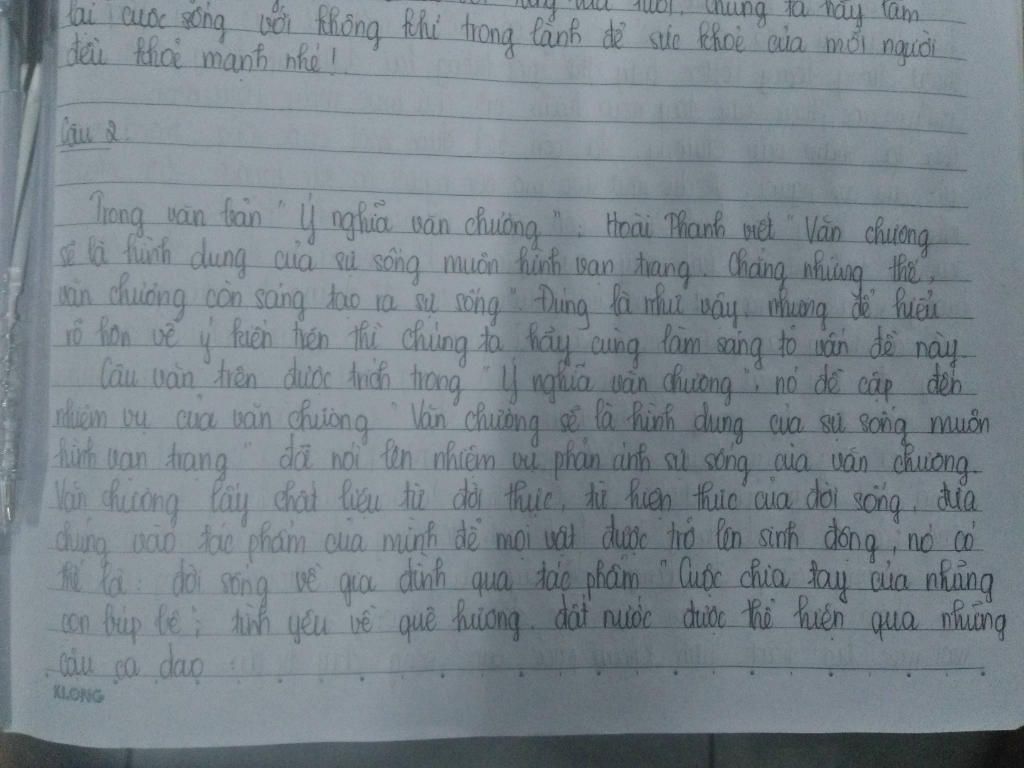 lứa tuổi, chúng ta hãy làm
lại cuộc sống với không khí trong lành để sức khoẻ của mỗi người
đều khoẻ mạnh nhé!
Câu 2:
Trong văn bản "Ý nghĩa văn chương", Hoài Thanh viết "Văn chương
sẽ là hình dung của sự sống muôn hình vạn trạng. Chẳng những thế,
văn chương còn sáng tạo ra sự sống". Đúng là như vậy, nhưng để hiểu
rõ hơn về ý kiến trên thì chúng ta hãy cùng làm sáng tỏ vấn đề này.
Câu văn trên được trích trong "Ý nghĩa văn chương", nó đề cập đến
nhiệm vụ của văn chương "Văn chương sẽ là hình dung của sự sống muôn
hình vạn trạng" đã nói lên nhiệm vụ phản ánh sự sống của văn chương.
Văn chương lấy chất liệu từ đời thực, từ hiện thực của đời sống, đưa
chúng vào tác phẩm của mình để mọi vật được trở lên sinh động, nó có
thể là: đời sống về gia đình qua tác phẩm "Cuộc chia tay của những
con búp bê; tình yêu về quê hương, đất nước được thể hiện qua những
câu ca dao :
KLONG